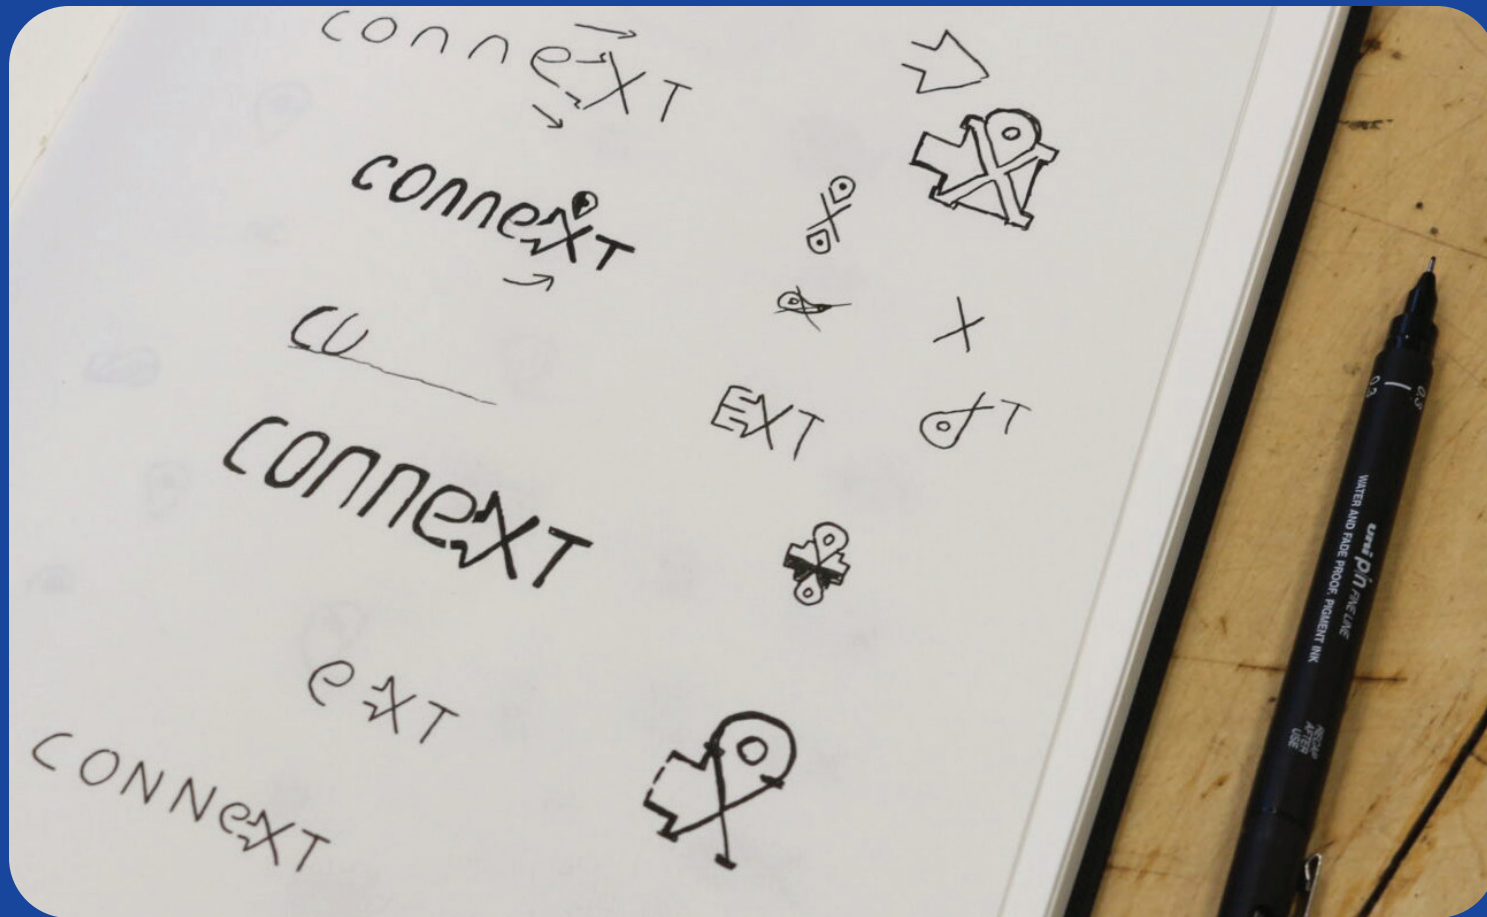 conneXT
conneXT
co
EXT
XT
conneXT
eXT
CONNeXT
0.3
0.3
uni pin FINE LINE
WATER AND FADE PROOF, PIGMENT INK
RECAP
AFTER
USE